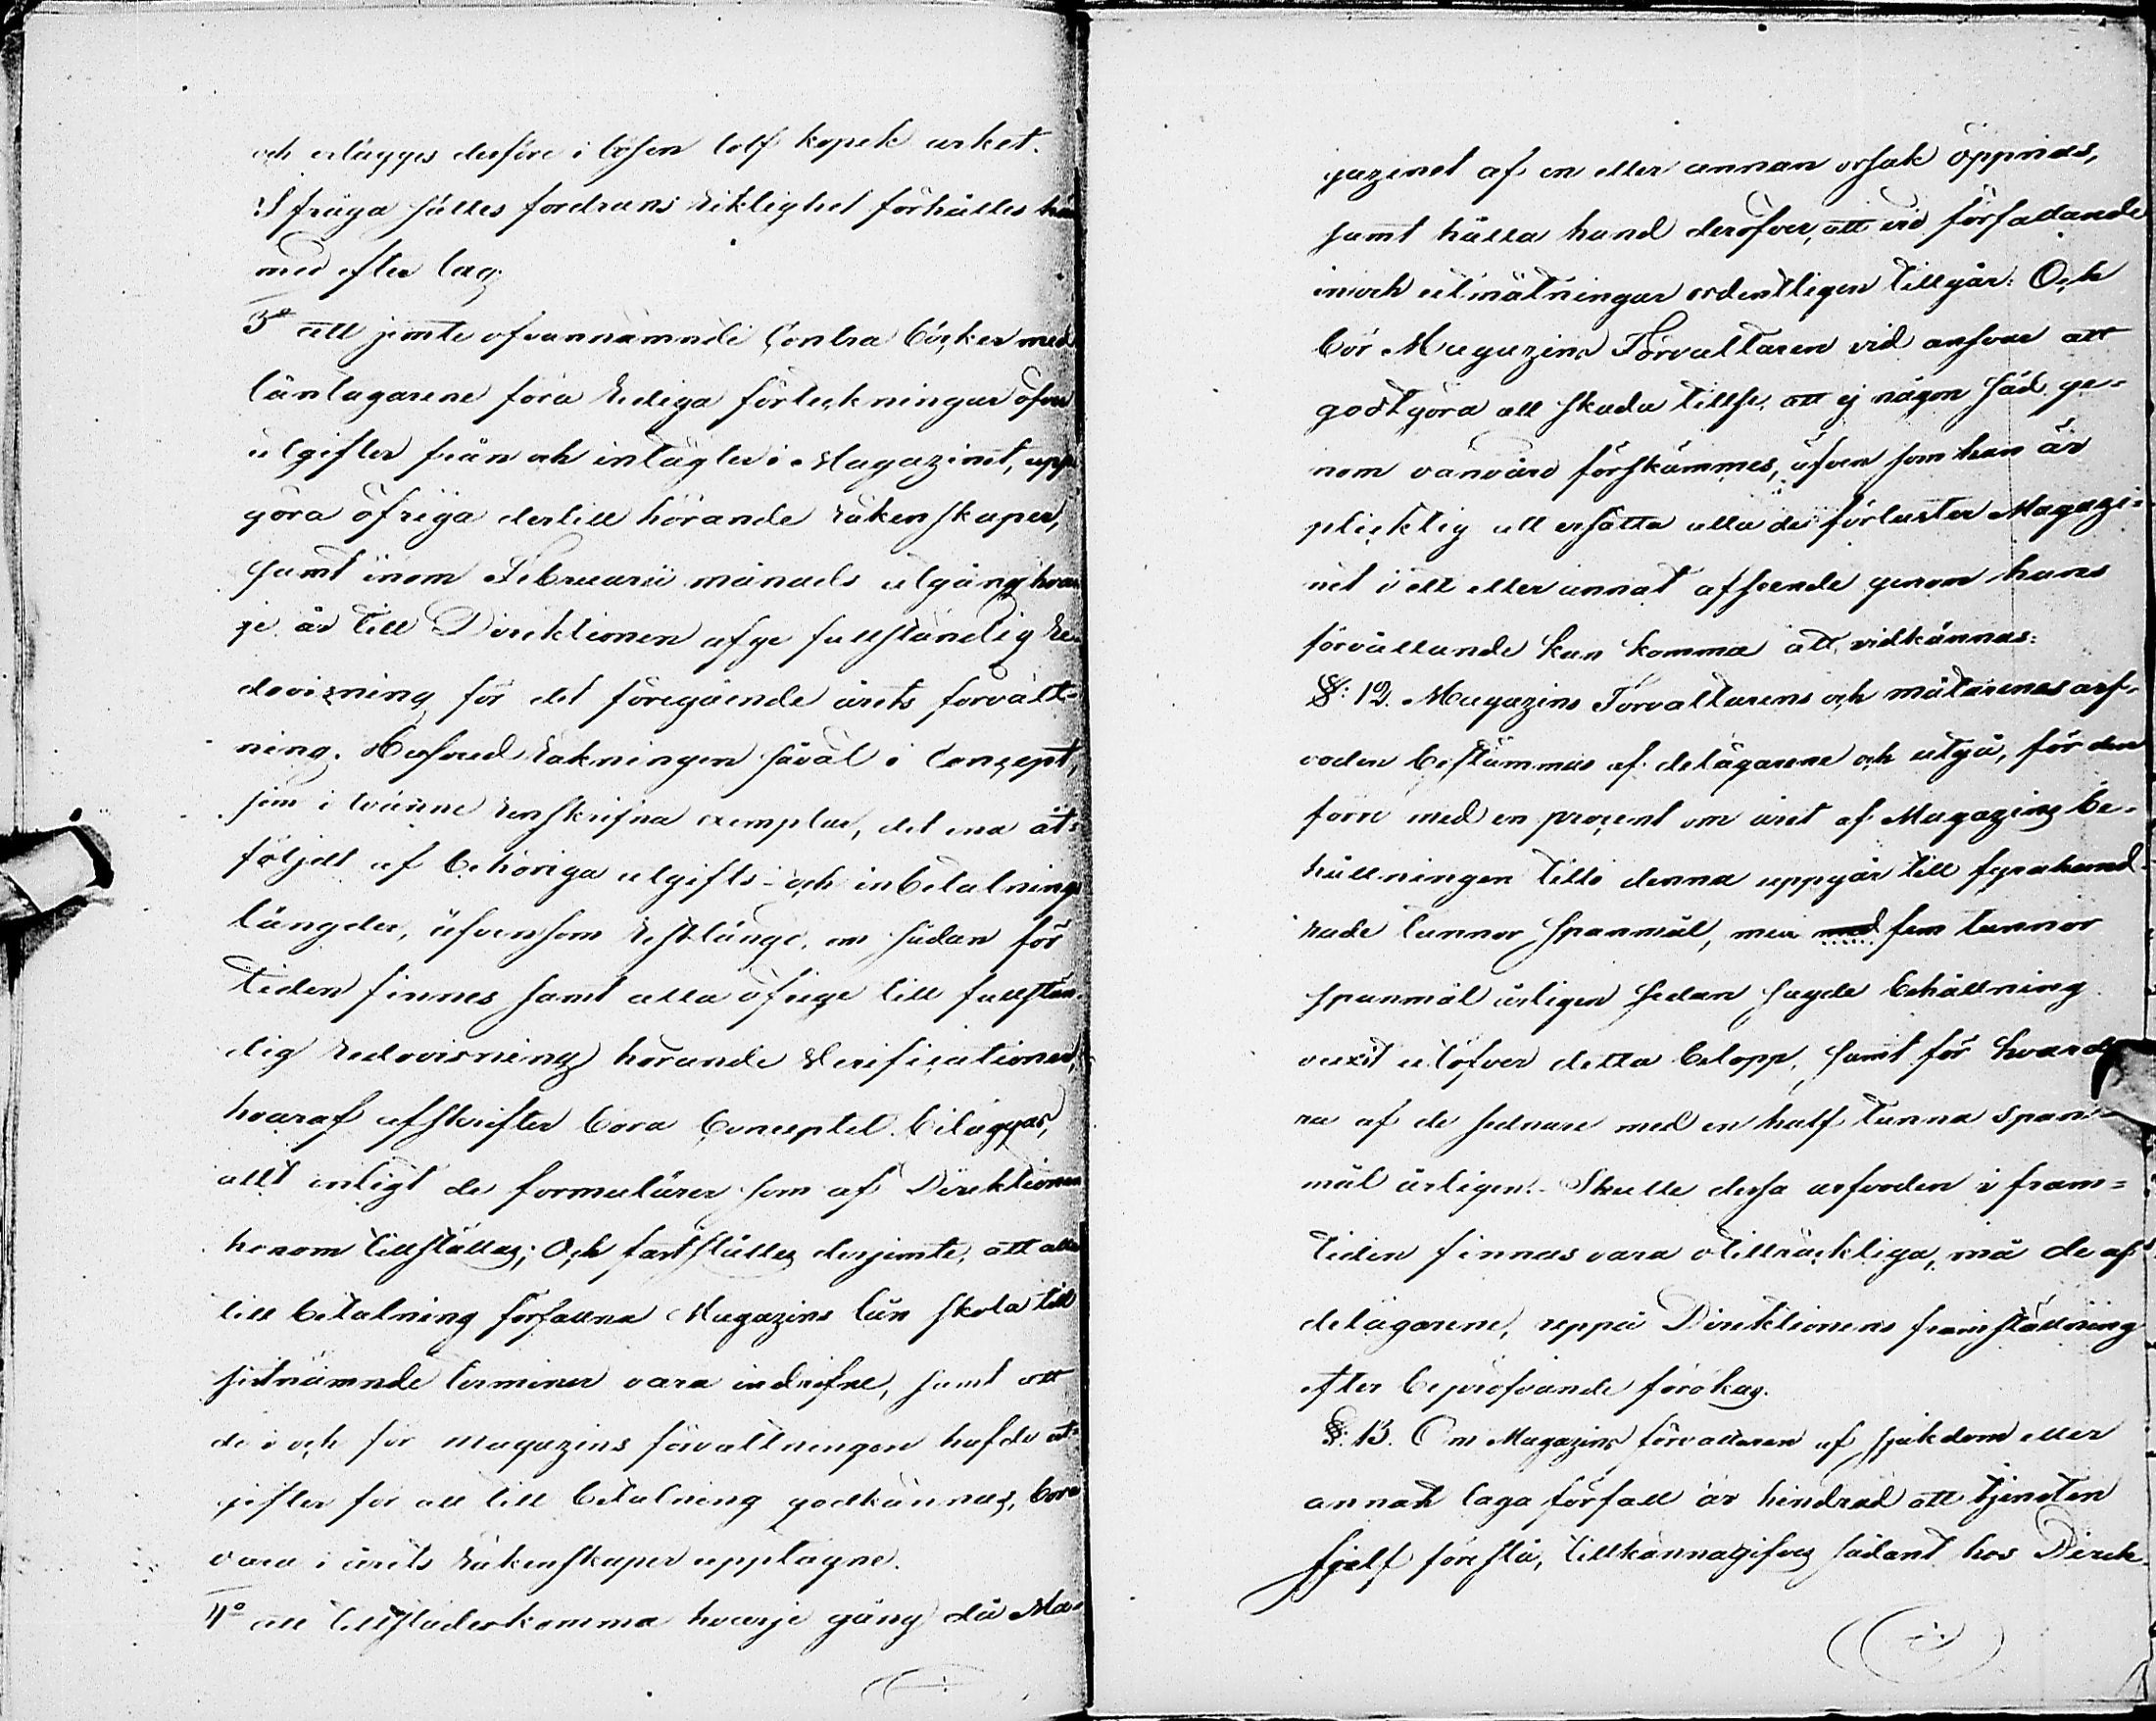 och erlägges derföre i lösen tolf kopek arket.
I fråga sättes fordrans riktighet förhålles här
med efter lag;
3º att jemte ofvannämnde Contra böcker med
låntagarene föra rediga förteckningar öfver
utgifter från och intägter i Magazinet, upp
göra öfriga dertill hörande räkenskaper,
samt inom Februarii månads utgång hvar
je år till Direktionen afge fullständig re
dovizning för det föregående årets förvalt=
ning. Hufvud räkningen såväl i Concept,
som i tvänne renskrifna exemplar, det ena åt=
följdt af behöriga utgifts- och inbetalnings
längder, äfvensom restlängd, om sådan för
tiden finnes samt alla öfrige till fullstän
dig redovisning hörande Verificationer,
hvaraf afskrifter böra Conceptet biläggas,
allt enligt de formulärer som af Direktionen
honom tillställas; Och fastställes derjemte, att alla
till betalning förfallna Magazins lån skola till
sistnämnde terminer vara indrifne, samt att
de i och för magazins förvaltningen hafde ut=
gifter för att till betalning godkännas, böra
vara i årets räkenskaper upptagne.
4º att tillstädeskomma hvarje gång då Ma-
gazinet af en eller annan orsak öppnas,
samt hålla hand deröfver, att vid förfallande
in och utmätningar ordentligen tillgår: Och
bör Magazins Förvaltaren vid ansvar att
godtgöra all skada tillse, att ej någon säd ge=
nom vanvård förskämmes, äfven som han är
plicktig att ersätta alla de förluster Magazi=
net i ett eller annat afseende genom hans
förvållande kan komma att vidkännas:
§: 12. Magazins Förvaltarens och mätarenas arf-
voden bestämmas af delägarene och utgå, för den
förre med en procent om året af Magazins be-
hållningen tills denna uppgår till fyrahund-
rade tunnor spanmål, men med fem tunnor
spanmål årligen sedan sagde behållning
vuxit utöfver detta belopp, samt för hvard
ra af de sednare med en half tunna span-
mål årligen. Skulle dessa arfvoden i fram=
tiden finnas vara otillräckliga, må de af
delägarene, uppå Direktionens framställning
efter bepröfvande förökas.
§: 13. Om Magazins förvaltaren af sjukdom eller
annat laga förfall är hindrad att tjensten
sjelf förestå, tillkännagifves sådant hos Direk-